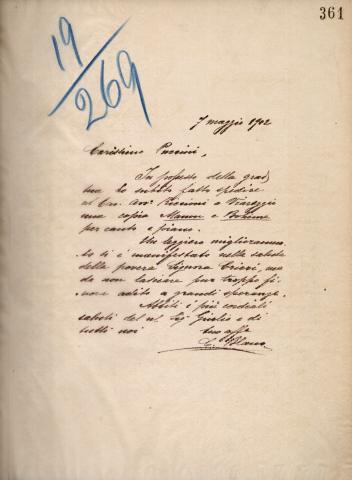 361
19/269
7 maggio 1902
Carissimo Puccini,
In possesso della grad
tua ho subito fatto spedire
al Cav. Avv. Riccioni a Viareggio
una copia Manon e Bohème
per canto e piano.
Un leggiero miglioramen
to si è manifestato nella salute
della povera Signora Ginori, ma
da non lasciare pur troppo fi-
nora adito a grandi speranze.
Abbiti i più cordiali
saluti del nl Sig Giulio e di
tutti noi
tuo aff
C. Blanc